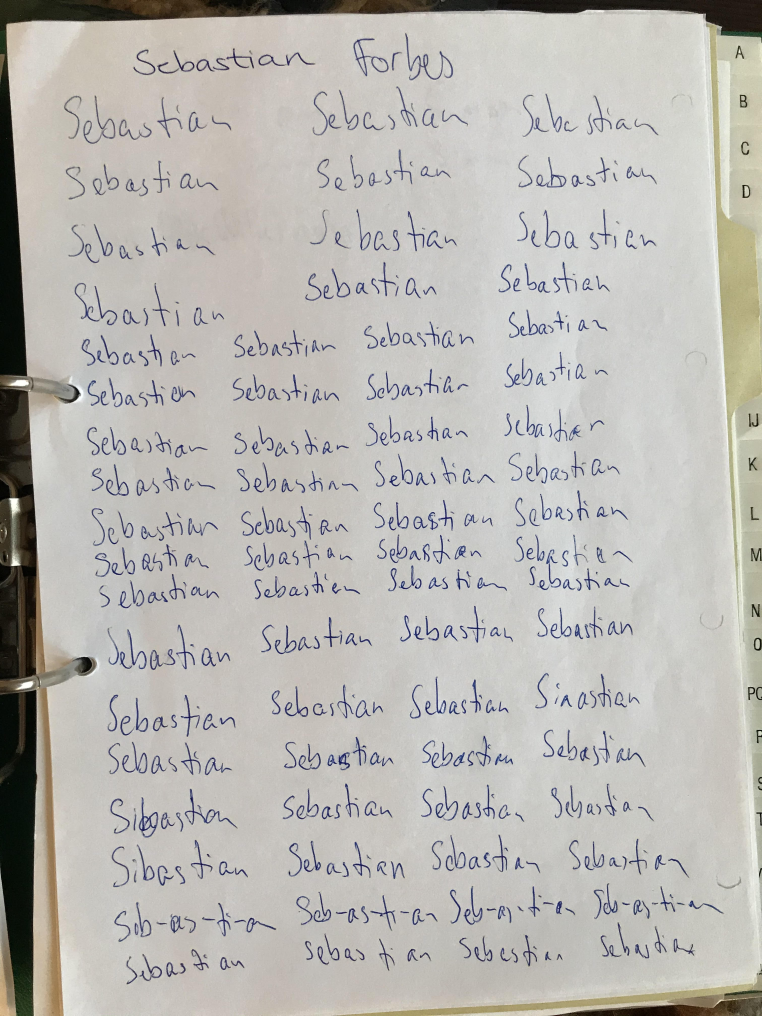 Sebastian Forbes
Sebastian Sebastian Sebastian
Sebastian Sebastian Sebastian
Sebastian Sebastian Sebastian
Sebastian Sebastian Sebastian
Sebastian Sebastian Sebastian Sebastian
Sebastien Sebastian Sebastian Sebastian
Sebastian Sebastian Sebastian Sebastian
Sebastian Sebastian Sebastian Sebastian
Sebastian Sebastian Sebastian Sebastian
Sebastian Sebastian Sebastian Sebastian
Sebastian Sebastien Sebastian Sebastian
Sebastian Sebastian Sebastian Sebastian
Sebastian Sebastian Sebastian Sinastian
Sebastian Sebastian Sebastian Sebastian
Sibastian Sebastian Sebastian Sebastian
Sibastian Sebastian Sebastian Sebastian
Seb-as-ti-an Seb-as-ti-an Seb-as-ti-an Seb-as-ti-an
Sebastian Sebastian Sebastian Sebastian
A
B
C
D
IJ
K
L
M
N
O